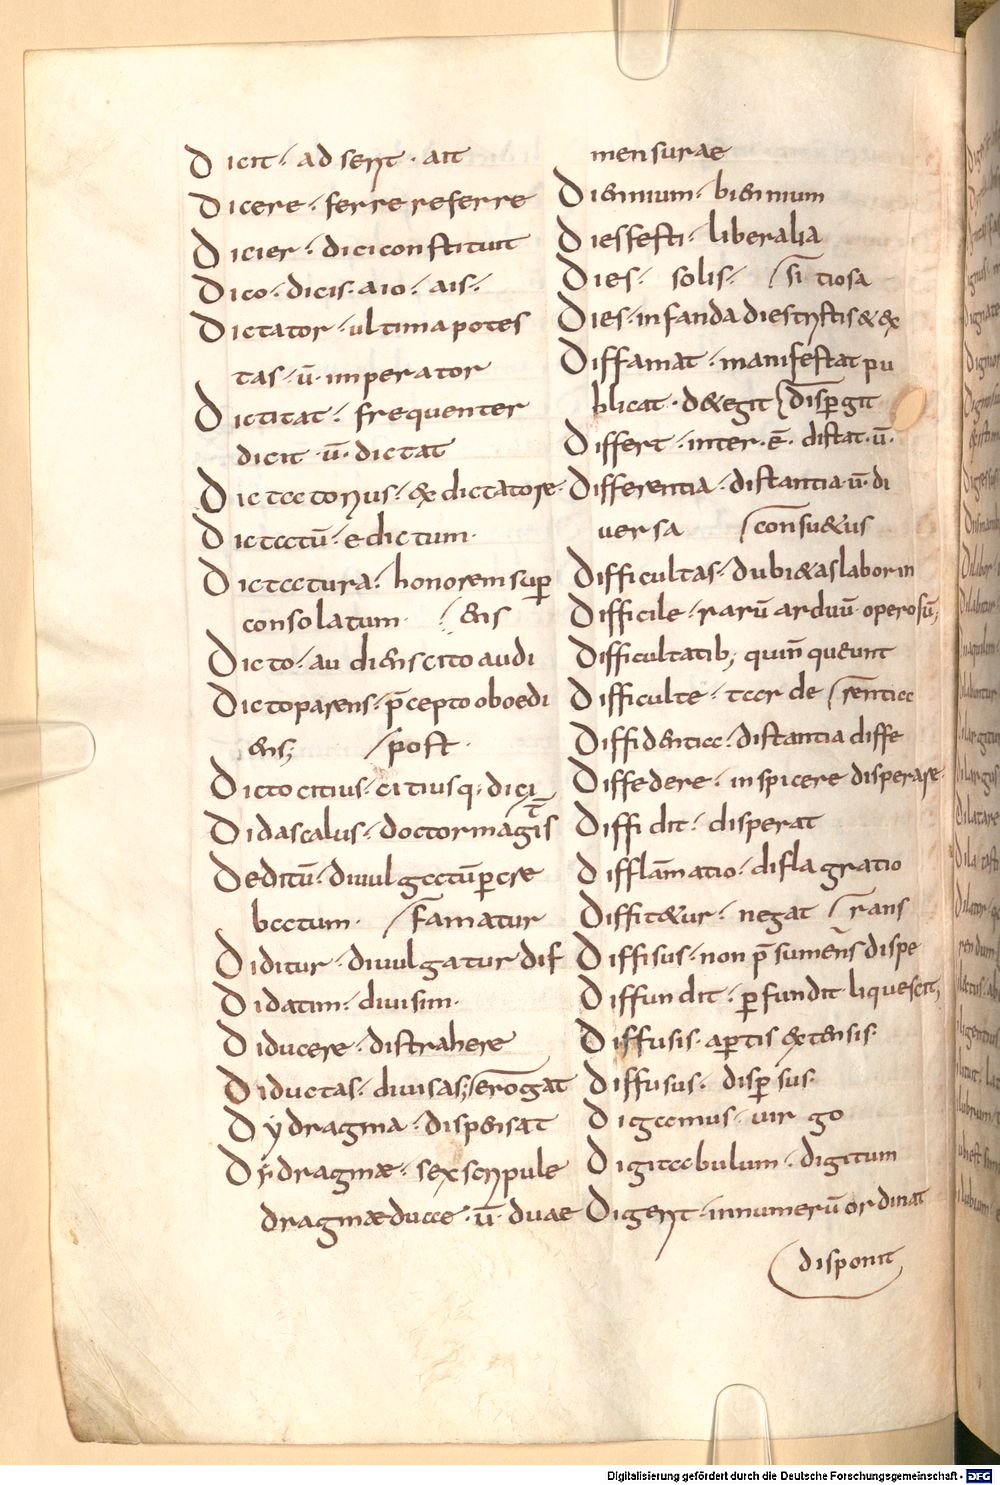 Dicit · adserit · ait
Dicere · ferre referre
Dicier · dici constituit
Dico · dicis · aio · ais ·
Dictator · ultima potes
tas · ū · imperator
Dictitat · frequenter
dicit · ū · dictat
Dictatorius · ex dictatore
Dictatū · edictum ·
Dictatura · honorem sup
consolatum · ens
Dicto · audiens dicto audi
Dicto parens · p̄cepto oboedi
ens; post ·
Dicto citius · citius q · dici
Didascalus · doctor magist̄
Deditū · divulgatū p cre
batum · famatur
Diditur · divulgatur dif
Didatim · divisim ·
Diducere · distrahere
Diductas · divisas; erogat
Dẏdragma · dispensat
Dẏdragmæ · sex scripule
dragmæ duae · ū · duae
mensurae
Diennium · biennium
Dies festi · liberalia
Dies · solis · si tiosa
Dies · infanda dies tristis & ex
Diffamat · manifestat pu
blicat · d&egit dispgit
Differt · inter · ē · distat · ū ·
Differentia · distantia · ū · di
versa consu&us
Difficultas · dubi&as labor in
Difficile · rarū arduū operosū;
Difficultatib; quin queunt
Difficulte · tarde rentia
Diffidentia · distantia diffe
Diffedere · inspicere disperare
Diffidit · disperat
Difflāmatio · diflagratio
Diffit&ur · negat rans
Diffisus · non p̄sumens dispe
Diffundit · pfundit liquescit;
Diffusis · aptis extensis ·
Diffusus · dispsus ·
Digamus · vir go
Digitabulum · digitum
Digerit · in numerū ordinat
disponit
Digitalisierung gefördert durch die Deutsche Forschungsgemeinschaft - DFG